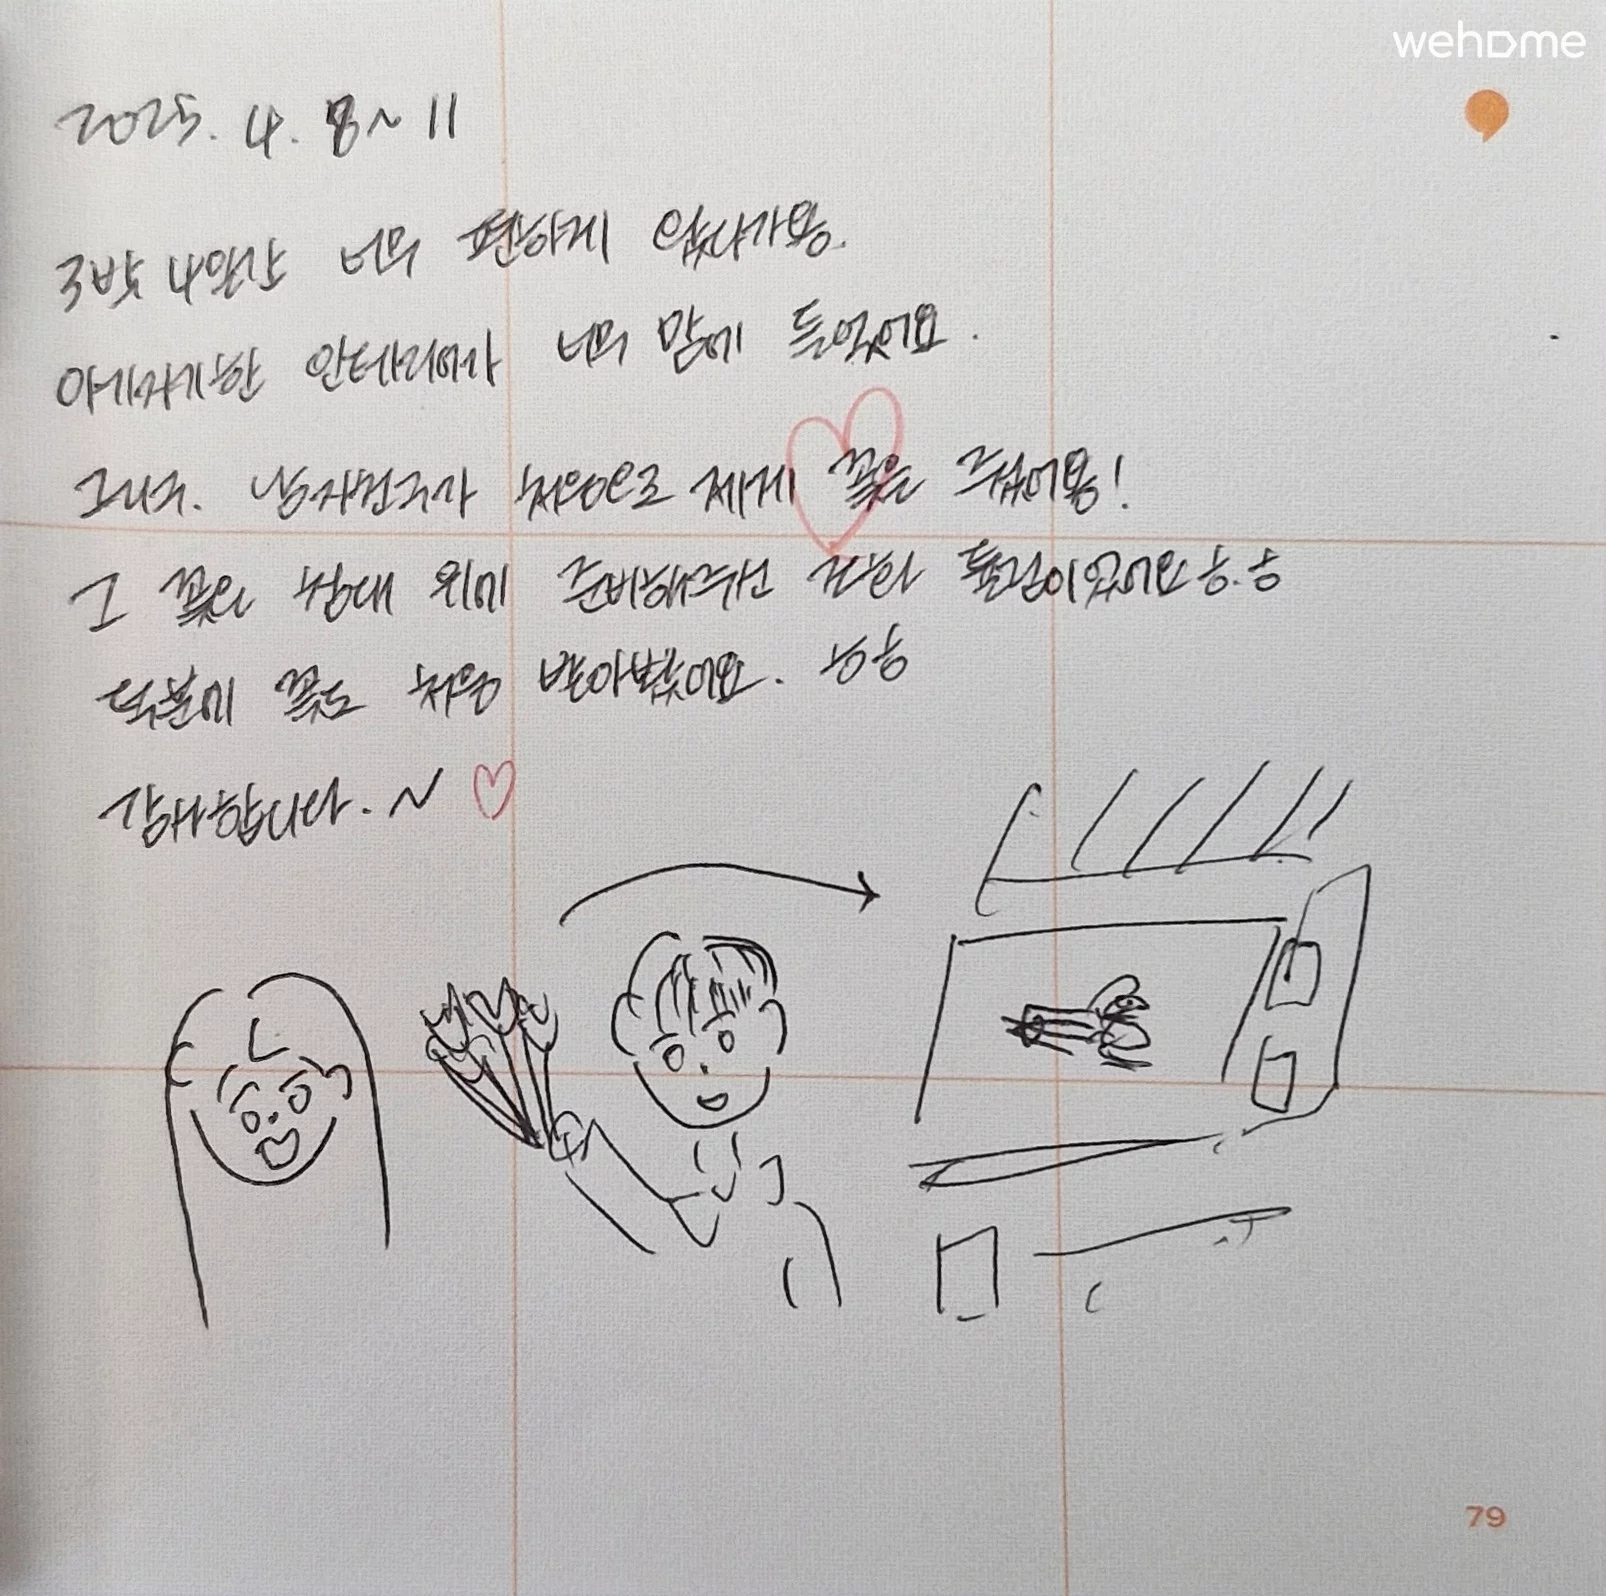 wehome
2025. 4. 8~11
3박 4일간 너무 편하게 있다가용.
아기자기한 인테리어가 너무 맘에 들었어요.
그리구. 남자친구가 처음으로 제게 꽃을 줬어용!
그 꽃은 침대 위에 준비해주신 튤립이었어요ㅎ.ㅎ
덕분에 꽃도 처음 받아봤어요. ㅎㅎ
감사합니다.~ ♡
79